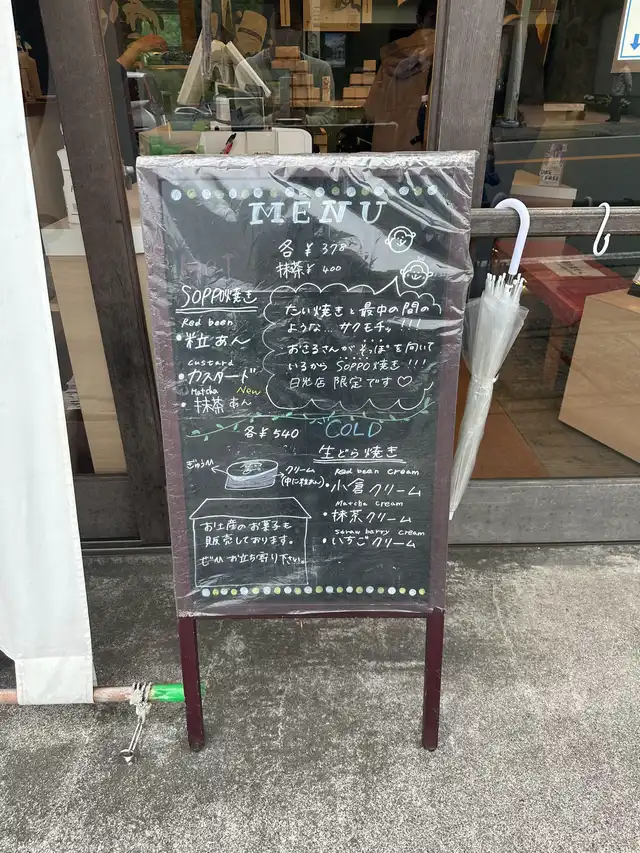 MENU
各 ¥378
抹茶 ¥400
SOPPO焼き
Red been
・粒あん
Custard
・カスタード
Matcha
New
・抹茶あん
たい焼きと最中の間の
ような…サクモチッ!!!
おさるさんがそっぽを向いて
いるから SOPPO焼き!!!
日光店限定です♡
各¥540
COLD
生どら焼き
ぎゅうひ
クリーム
(中に粒あん)
Red bean cream
・小倉クリーム
Matcha cream
・抹茶クリーム
Straw barry cream
・いちごクリーム
お土産のお菓子も
販売しております。
ぜひお立ち寄り下さい。